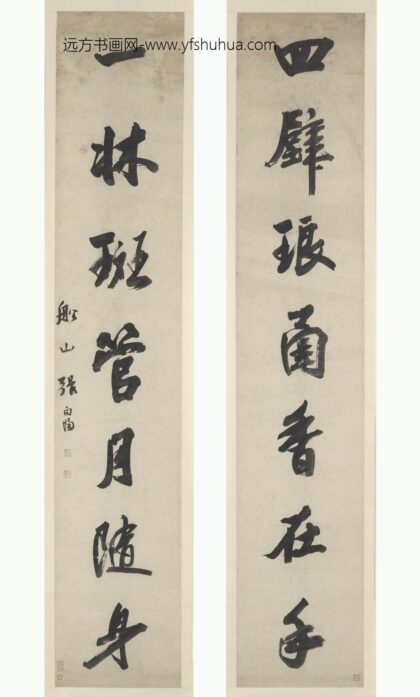 远方书画网-www.yfshuhua.com
四壁琅函香在手
一牀斑管月隨身
船山張問陶